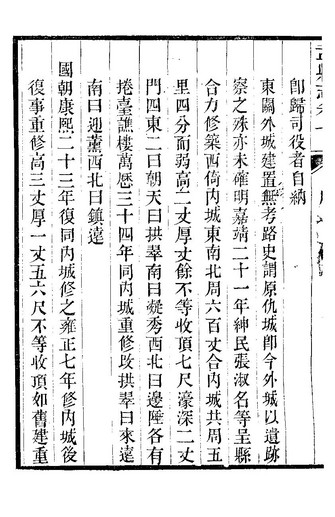 即歸司役者自納
東關外城建置無考路史謂原仇城即今外城以遺跡
察之殊亦未確明嘉靖二十一年紳民張淑名等呈縣
合力修築西倚內城東南北周六百丈合內城共周五
里四分而弱高二丈厚丈餘不等收頂七尺濠深二丈
門四東二曰朝天曰拱翠南曰凝秀西北曰邊陲各有
捲臺譙樓萬歷三十四年同內城重修改拱翠曰來遠
南曰迎薰西北曰鎮遠
國朝康熙二十三年復同內城修之雍正七年修內城後
復事重修高三丈厚一丈五六尺不等收頂如舊建重